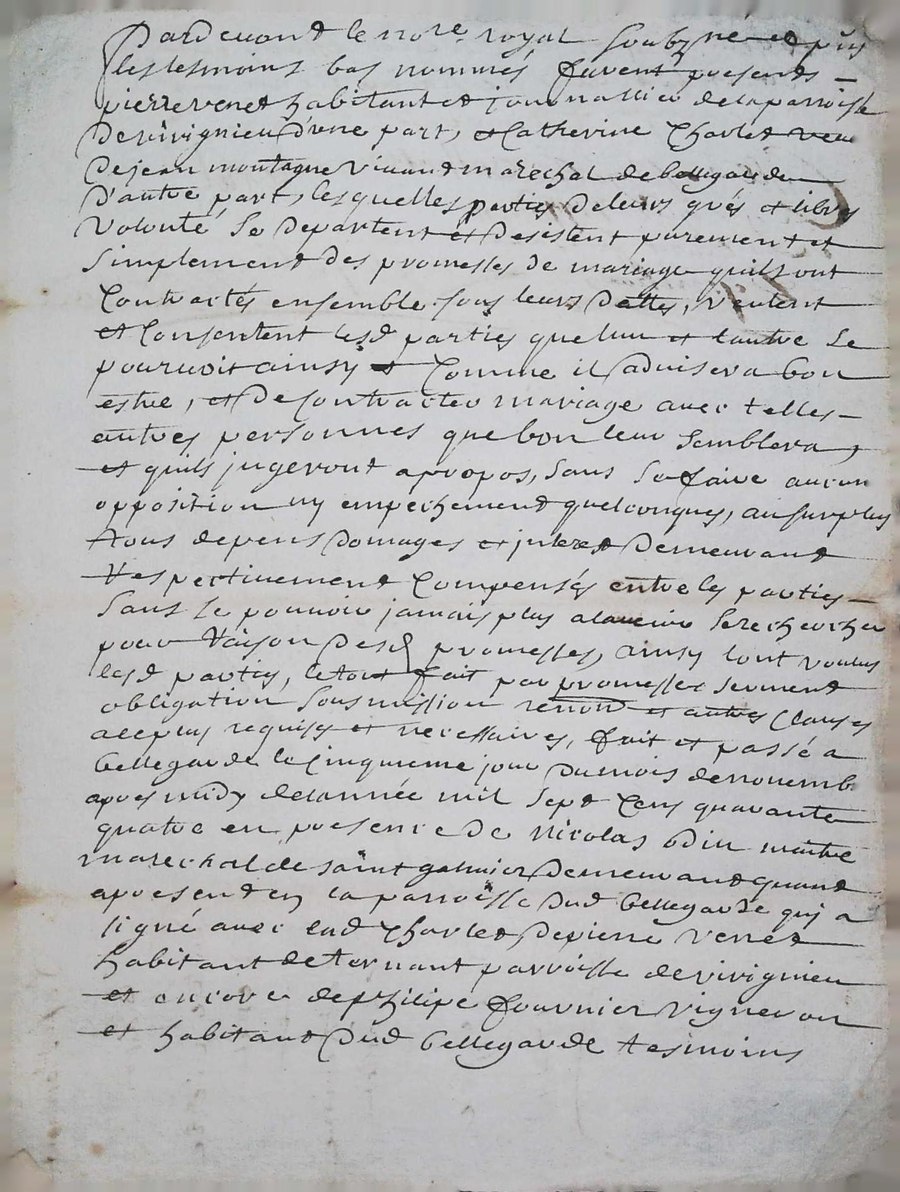 Pardevant le nore royal soubsné et puis
les tesmoins bas nommés furent presents
pierre venet habitant et journallier de la parroisse
de virignieu d'vne part, et Catherine Charlet veue
de jean montagne vivant marechal de bellegarde
d'autre part, lesquelles parties de leurs grés et libres
volonté se departent et desistent purement et
simplement des promesses de mariage quils ont
Contractés ensemble sous leurs dattes, veulent
et Consentent lesd parties que lun et lautre se
pourvoit ainsy et Comme il advisera bon
estre, et de Contracter mariage avec telles
autres personnes que bon leur semblera,
et quils jugeront apropos, sans se faire aucun
opposition ny empechement quelconques, au surplus
tous depens domages et interest demeurant
respectivement Compensés entre les parties
sans le pouvoir jamais plus alavenir se rechercher
pour raison desd promesses, ainsy lont voulus
lesd parties, le tout fait par promesses serment
obligation sousmission renon et autres Clauses
requises et necessaires, fait et passé a
bellegarde le Cinquieme jour du mois de novemb
apres midy de lannée mil sept Cens quarante
quatre en presence de Nicolas odin maitre
marechal de saint galmier demeurant quant
apresent en la parroisse dud bellegarde qui a
signé avec lad Charlet, de pierre venet
habitant de parroisse de virignieu
et encore de philipe fournier vigneron
et habitant dud bellegarde tesmoins